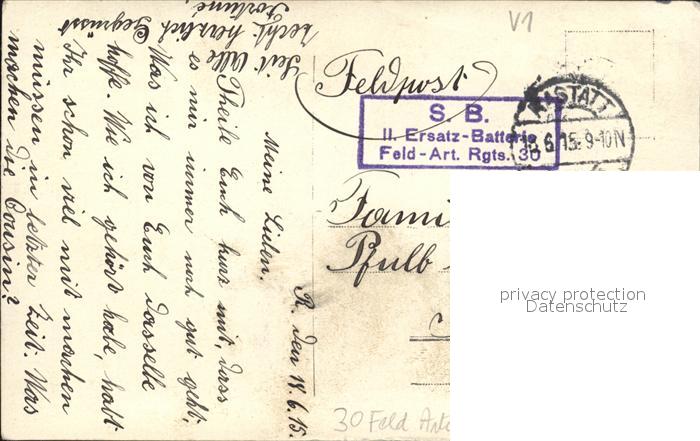 V1
Feldpost
S. B.
II. Ersatz-Batterie
Feld-Art. Rgts. 30
RASTATT
18 6.15. 9-10N
Fami
Pfulb
privacy protection
Datenschutz
30 Feld Art
R. den 18.6.15.
Meine Lieben.
Theile Euch kurz mit, dass
es mir immer noch gut geht,
Was ich von Euch dasselbe
hoffe. Wie ich gehört habe, habt
Ihr schon viel mit machen
müssen in letzter Zeit. Was
machen die Cousin?
Seit Alle
recht herzlich Gegrüsst